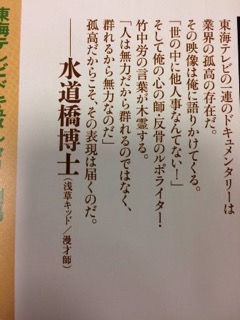 東海テレビの一連のドキュメンタリーは
業界の孤高の存在だ。
その映像は俺に語りかけてくる。
「世の中に他人事なんてない!」
そして俺の心の師・反骨のルポライター・
竹中労の言葉が木霊する。
「人は無力だから群れるのではなく、
群れるから無力なのだ」
孤高だからこそ、その表現は届くのだ。
――水道橋博士(浅草キッド/漫才師)
東海テレビドキュメンタリー劇場